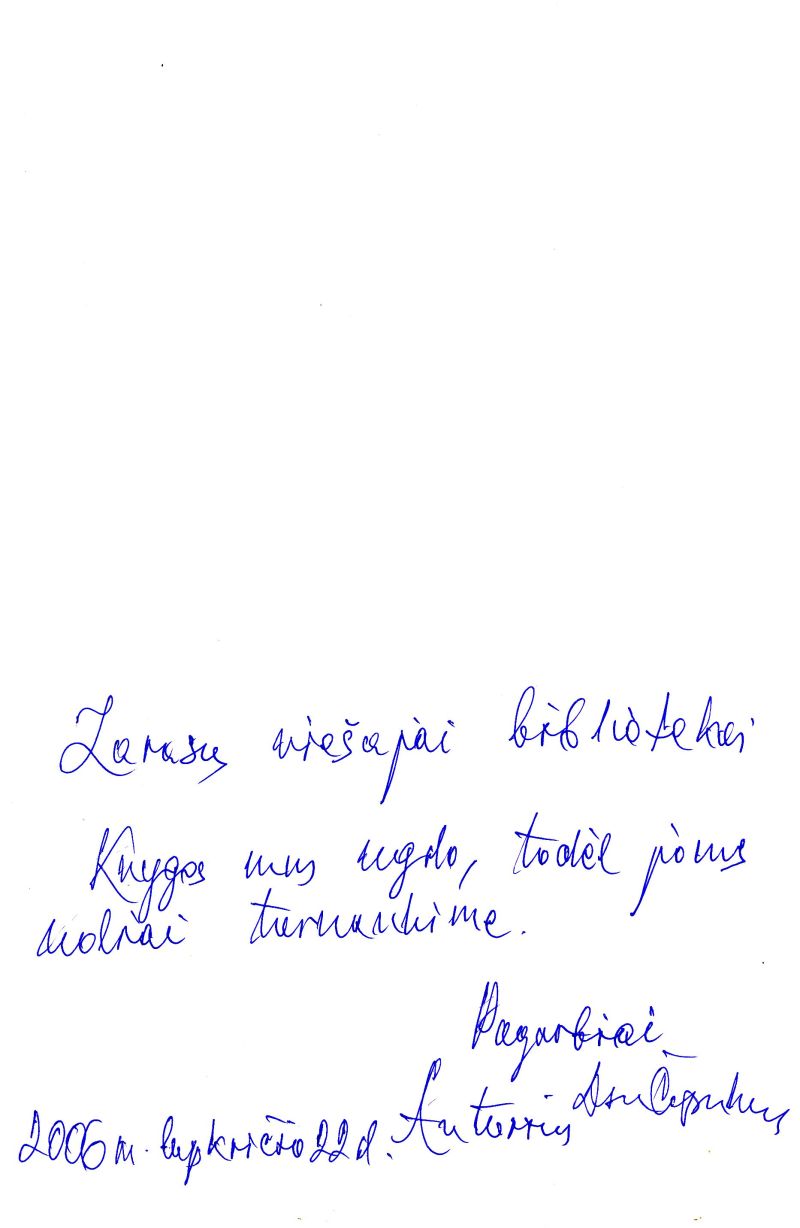 Zarasų viešajai bibliotekai
Knygos mus ugdo, todėl joms
uoliai tarnaukime.
Pagarbiai
Autorius
2006 m. lapkričio 22 d.